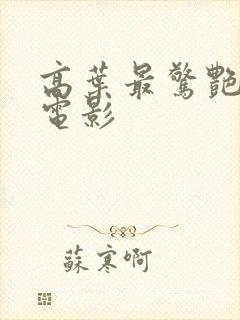 高葉最驚艷
電影
蘇寒啊